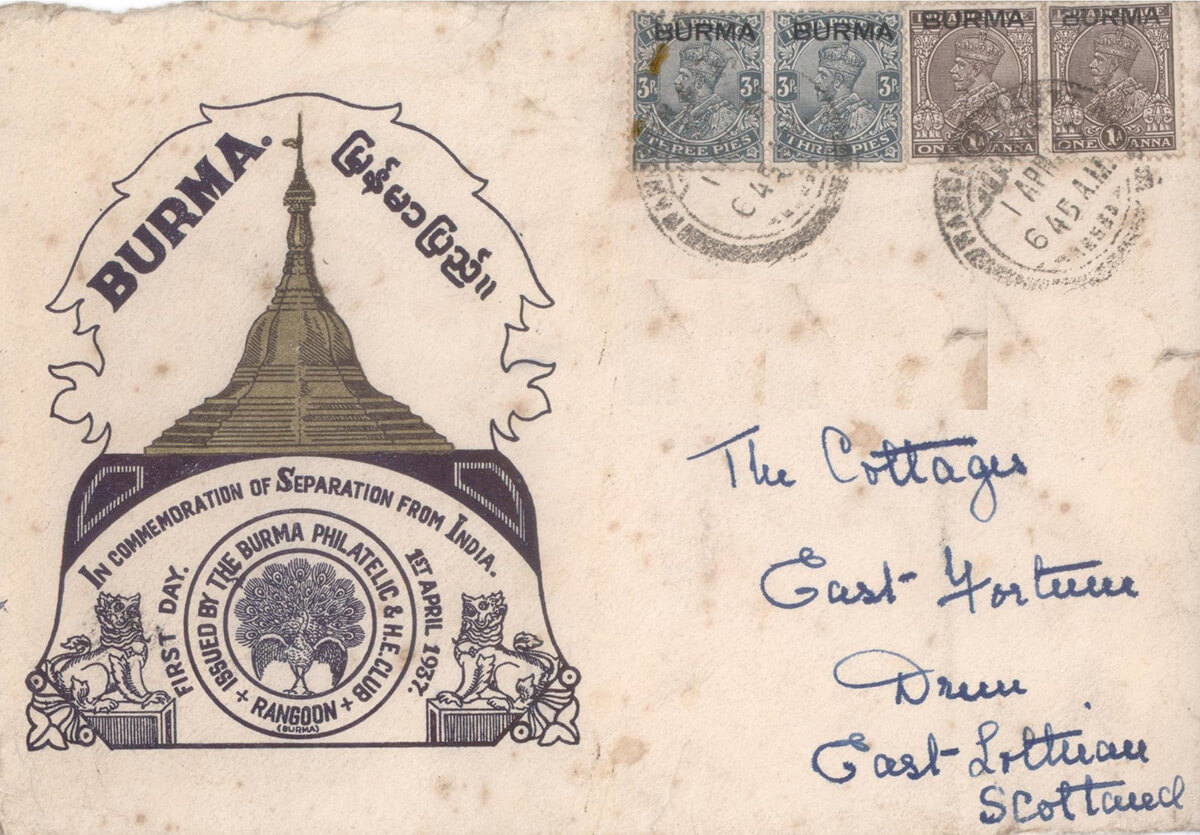 BURMA.
မြန်မာပြည်။
IN COMMEMORATION OF SEPARATION FROM INDIA.
FIRST DAY.
1ST APRIL 1937.
ISSUED BY THE BURMA PHILATELIC & H.E. CLUB
+ RANGOON +
(BURMA)
BURMA
3P. 3P.
THREE PIES
BURMA
3 3P.
THREE PIES
BURMA
ONE 1A ANNA
BURMA
ONE 1A ANNA
1
645
1 APR
645 A.M.
The Cottages
East Fortune
Drem
East Lothian
Scotland